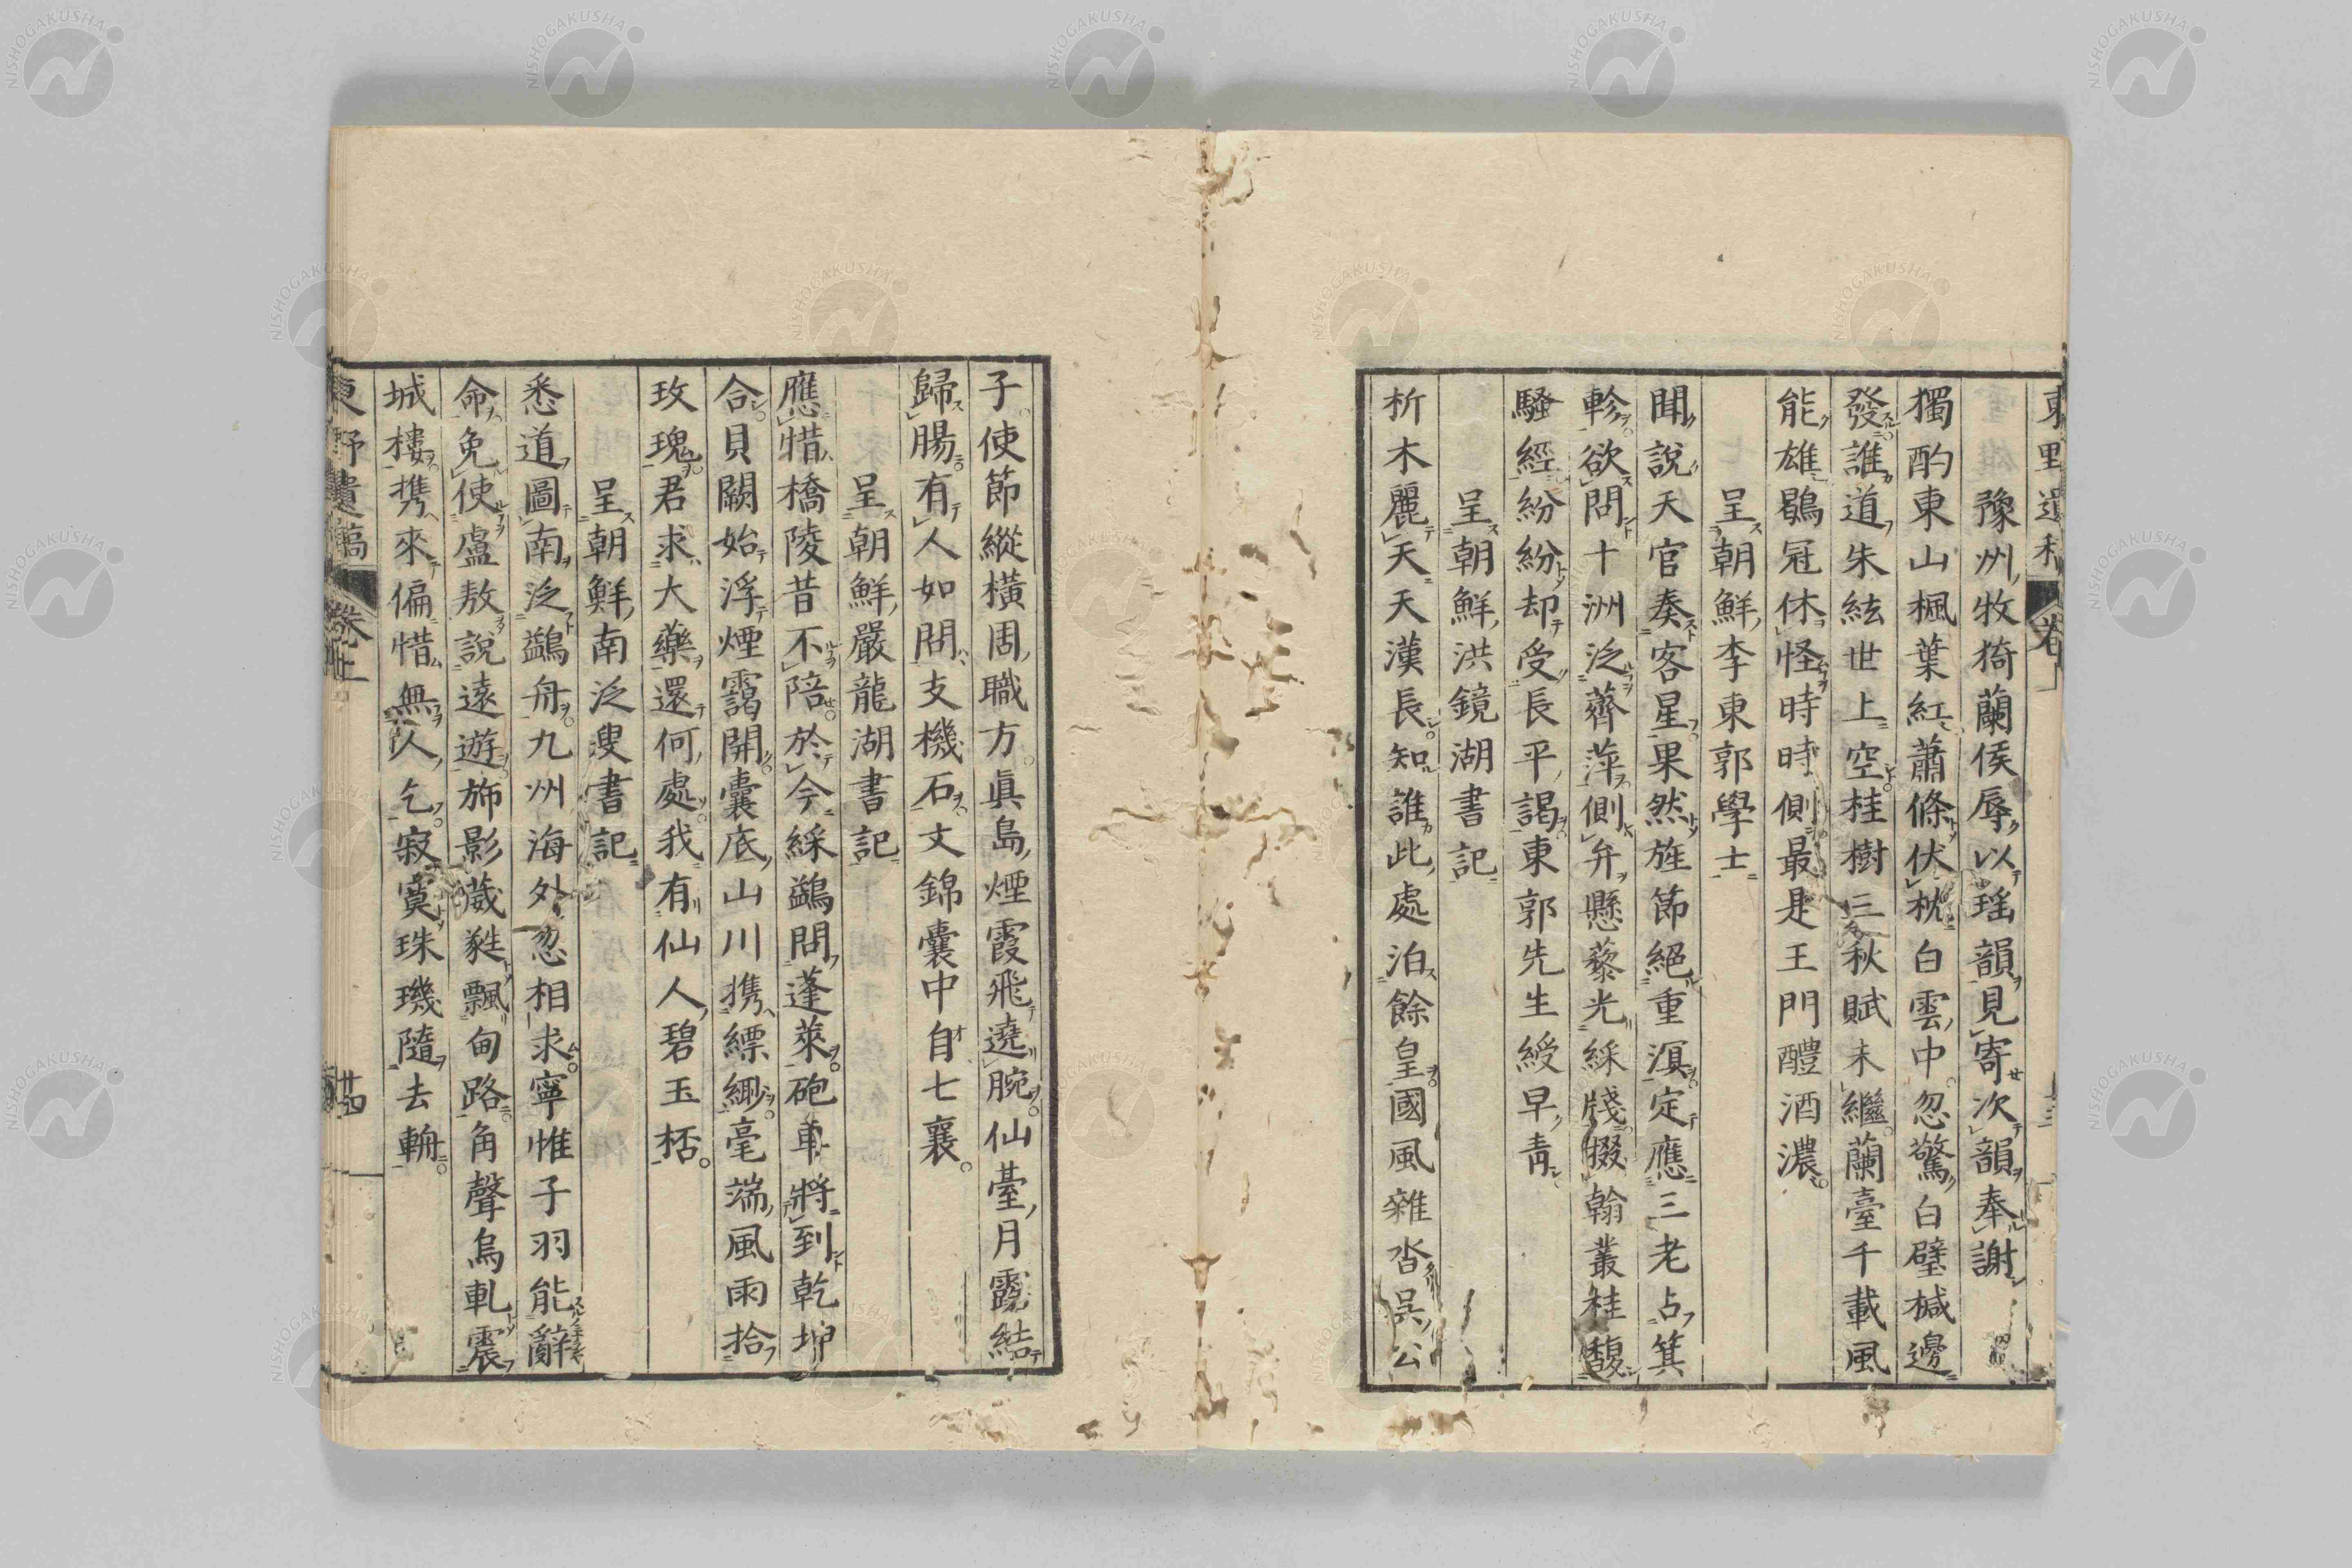 豫州牧猗蘭侯辱以瑶韻見寄次韻奉謝
獨酌東山楓葉紅蕭條伏枕白雲中忽驚白璧椷邊
發誰道朱絃世上空桂樹三秋賦未繼蘭臺千載風
能雄鶡冠休怪時時側最是王門醴酒濃
呈朝鮮李東郭學士
聞說天官奏客星果然旌節絕重溟定應三老占箕
軫欲問十洲泛薺萍側弁懸藜光綵牋掇翰叢桂馥
騷經紛紛却受長平謁東郭先生綬早靑
呈朝鮮洪鏡湖書記
析木麗天天漢長知誰此處泊餘皇國風雜沓吳公
子使節縱橫周職方眞島煙霞飛遶腕仙臺月露結
歸腸有人如問支機石文錦囊中自七襄
呈朝鮮嚴龍湖書記
應惜橋陵昔不陪於今綵鷁問蓬萊砲車將到乾坤
合貝闕始浮煙靄開囊底山川携縹緲毫端風雨拾
玫瑰君求大藥還何處我有仙人碧玉桮
呈朝鮮南泛叟書記
悉道圖南泛鷁舟九州海外忽相求寧惟子羽能辭
命免使盧敖說遠遊斾影葳蕤飄甸路角聲烏軋震
城樓携來偏惜無人乞寂寞珠璣隨去輈
東野遺稿 卷上 廿四